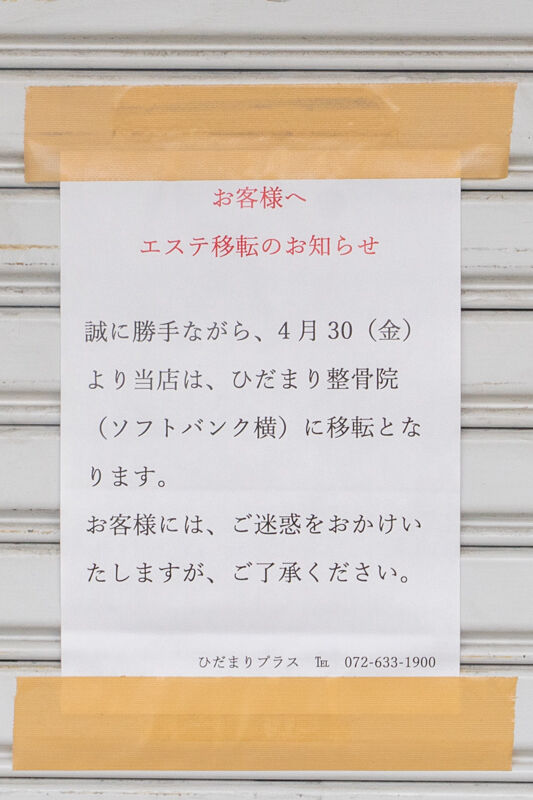 お客様へ
エステ移転のお知らせ
誠に勝手ながら、4月30（金）
より当店は、ひだまり整骨院
（ソフトバンク横）に移転とな
ります。
お客様には、ご迷惑をおかけい
たしますが、ご了承ください。
ひだまりプラス　℡　072-633-1900